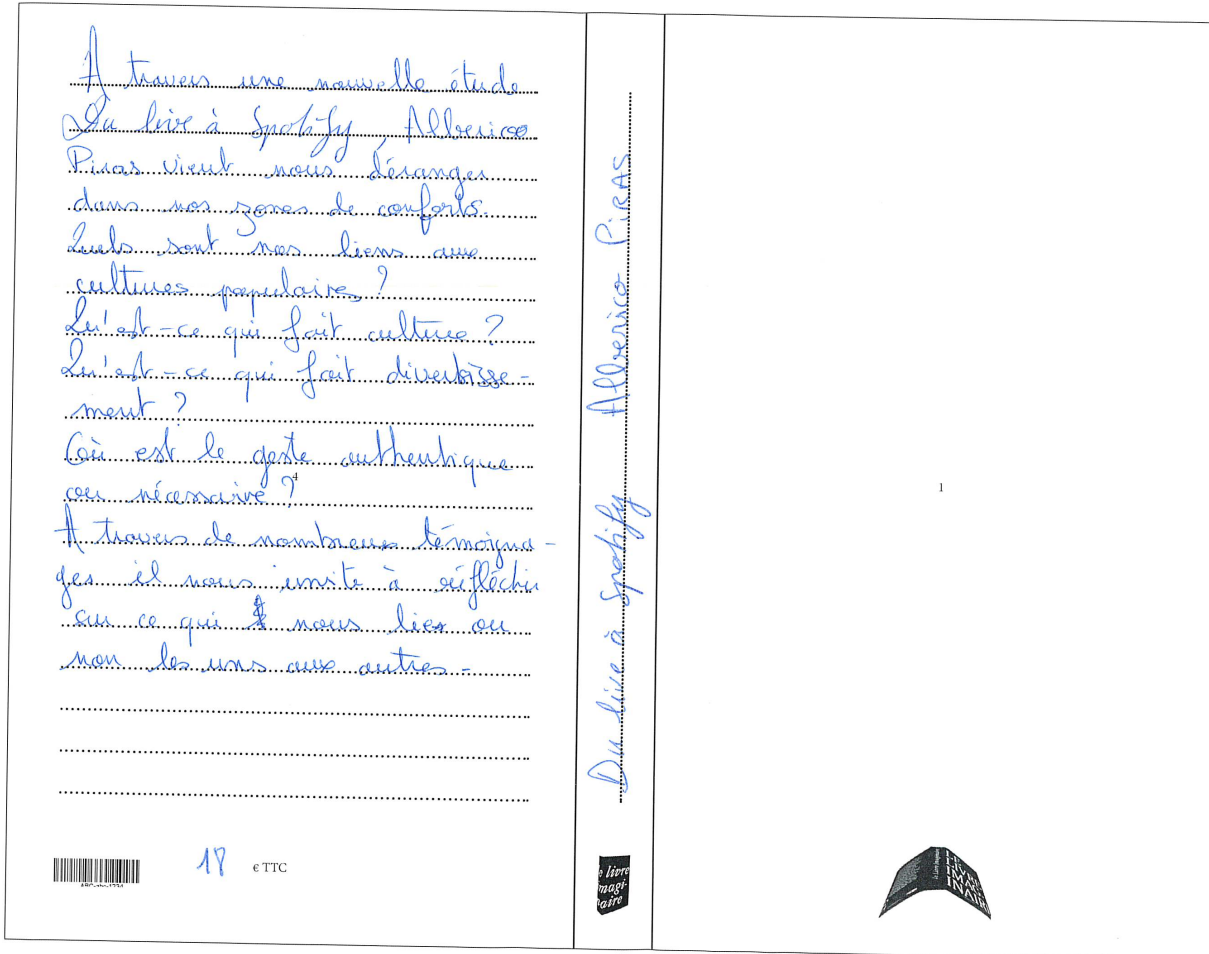 A travers une nouvelle étude
Du live à Spotify, Alberico
Piras vient nous déranger
dans nos zones de conforts.
Quels sont nos liens aux
cultures populaires ?
Qu'est-ce qui fait culture ?
Qu'est-ce qui fait divertisse-
ment ?
Où est le geste authentique
ou nécessaire ?
4
A travers de nombreux témoigna-
ges il nous invite à réfléchir
sur ce qui nous lies ou
non les uns aux autres-
18 € TTC
Du live à Spotify Alberico PIRAS
le livre
imagi-
naire
1
LE
LIVRE
IMAG
INAIR